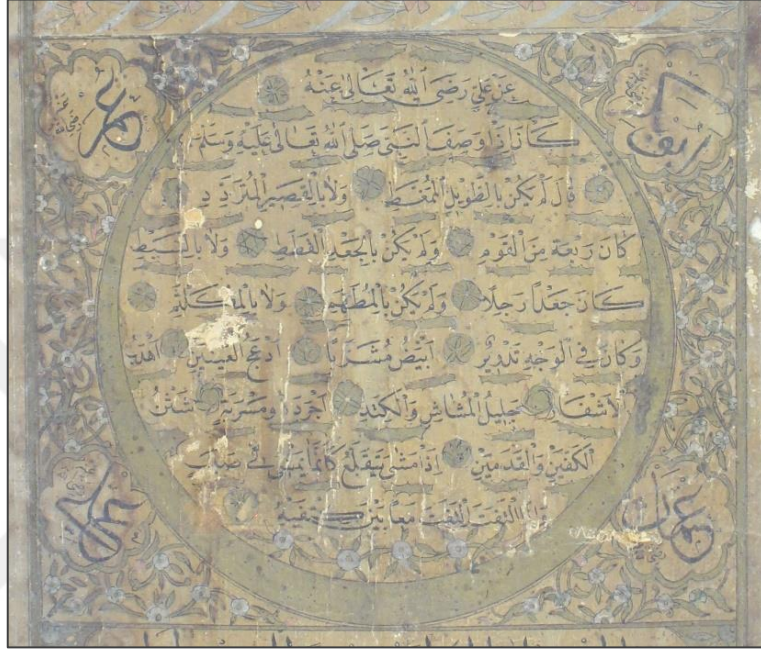 عَنْ عَلِيٍّ رَضِيَ اللهُ تَعَالٰى عَنْهُ
كَانَ اِذَا وَصَفَ النَّبِيَّ صَلَّى اللهُ تَعَالٰى عَلَيْهِ وَسَلَّمَ
قَالَ لَمْ يَكُنْ بِالطَّوِيلِ الْمُمَّغِطِ وَلَا بِالْقَصِيرِ الْمُتَرَدِّدِ
كَانَ رَبْعَةً مِنَ الْقَوْمِ وَلَمْ يَكُنْ بِالْجَعْدِ الْقَطَطِ وَلَا بِالسَّبِطِ
كَانَ جَعْدًا رَجِلًا وَلَمْ يَكُنْ بِالْمُطَهَّمِ وَلَا بِالْمُكَلْثَمِ
وَكَانَ فِي الْوَجْهِ تَدْوِيرٌ اَبْيَضُ مُشْرَبًا اَدْعَجُ الْعَيْنَيْنِ اَهْدَبُ
الْاَشْفَارِ جَلِيلُ الْمُشَاشِ وَالْكَتَدِ اَجْرَدُ ذُو مَسْرُبَةٍ شَثْنُ
الْكَفَّيْنِ وَالْقَدَمَيْنِ اِذَا مَشٰى يَتَقَلَّعُ كَاَنَّمَا يَمْشِي فِي صَبَبٍ
وَاِذَا الْتَفَتَ الْتَفَتَ مَعًا بَيْنَ كَتِفَيْهِ
عمر
عثمان
علي